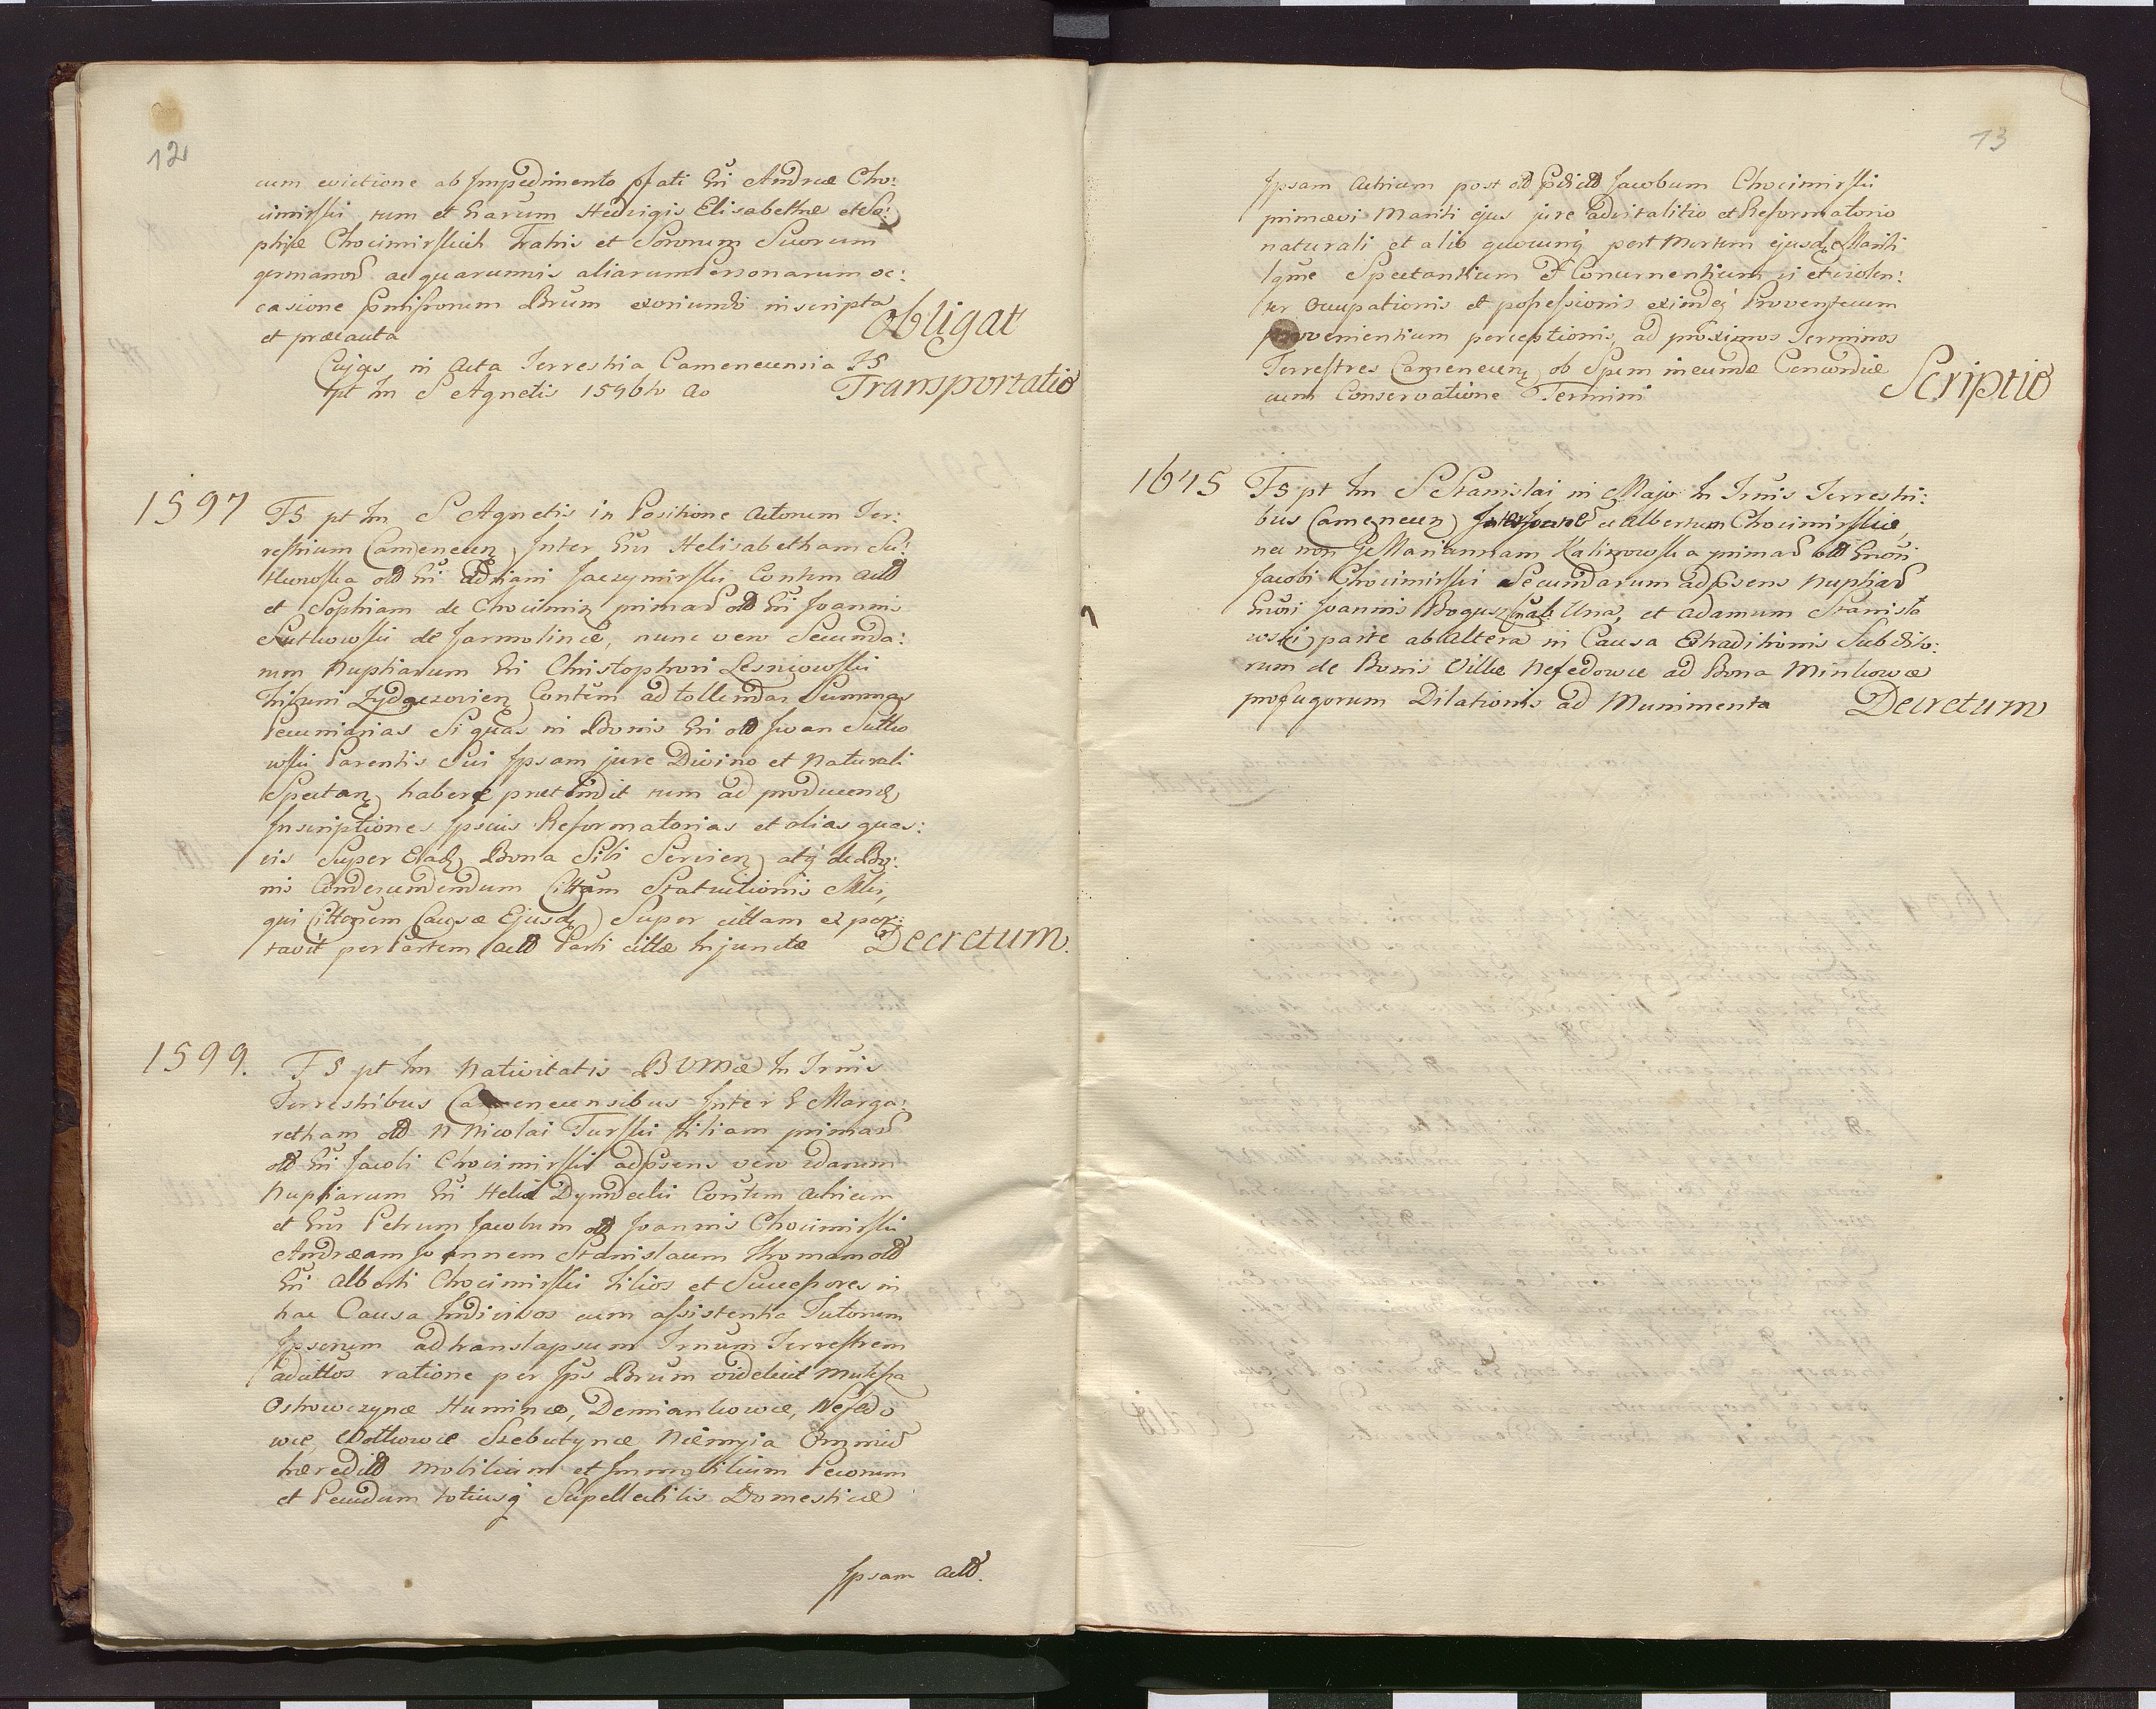 12
cum evictione ab Impedimento pfati Gñi Andreæ Cho:
cimirski tum et Garum Hedvigis Elisabethæ et So:
phiæ Chocimirskich Fratris et Sororum Suorum
germanoꝝ ac quarumvis aliarum Personarum oc:
casione pmissorum Brum exoriundi inscripta
et præcauta obligat
Cujus in Acta Terrestria Camenecensia FS
pt In S Agnetis 1596to Ao Transportatio
1597 FS pt In S Agnetis in Positione Actorum Ter:
restrium Camenecen Inter Gñs Helisabetham Su:
tkowska old Gñi Adriani Jaczymirski Contem Act
et Sophiam de Chocimirz primaꝝ old Gñi Joannis
Sutkowski de Jarmolince, nunc vero Secunda:
rum Nuptiarum Gñi Christophori Lesniowski
Tribuni Zydaczovien Contem ad tollendas Summas
Pecuniarias Si quas in Bonis Gñi old Joan Sutko
wski Parentis Sui Ipsam jure Divino et Naturali
Spectan habere prætendit tum ad producend
Inscriptiones Ipsius Reformatorias et alias quas:
vis Super Ead Bona Sibi Servien atq de Bo:
nis Condescendendum Cittam Statuitionis Mlri,
qui Cittonem Causæ Ejusd Super cittam ex por:
tavit per Partem Act Parti cittæ Injunctæ Decretum.
1599. FS pt In Nativitatis BVMæ In Trnis
Terrestribus Camenecensibus Inter G Marga:
retham old N Nicolai Turski filiam primaꝝ
old Gñi Jacobi Chocimirski ad psens vero 2darum
Nuptiarum Gñi Heliæ Dymidecki Contem Actricem
et Gñs Petrum Jacobum old Joannis Chocimirski
Andræam Joannem Stanislaum Thomam old
Gñi Alberti Chocimirski filios et Successores in
hac Causa Indivisos cum assistentia Tutorum
Ipsorum ad translapsum Trnum Terrestrem
adcittos ratione per Ips Brum videlicet
Ostrowczynæ Humince, Demiankowce, Nefedo
wce, Wolkowce Szebutynce Niemyia Omniũ
hæredit mobilium et Immobilium Pecorum
et Pecudum totiusq Supellectilis Domesticæ
Ipsam act.
13
Ipsam Actricem post old pdict Jacobum Chocimirski
primævi Mariti ejus jure advitalitio et Reformatorio
naturali et alio quocunq post Mortem ejusd Mariti
Iqme Spectantium et Concernentium vi et violen:
ter Occupationis et possessionis eximdeq Proventuum
provenientium perceptionis, ad proximos Terminos
Terrestres Camenecen ob Spem ineundæ Concordiæ
cum Conservatione Termini Scriptio
1645 FS pt In S Stanislai in Majo In Trnis Terrestri:
bus Camenecen Inter et Albertum Chocimirskie
nec non G Mariannam Kalinowska primaꝝ old Gnoñi
Jacobi Chocimirski Secundarum ad psens Nuptiaꝝ
Gnoñi Joannis Bogusz ab Una, et Adamum Stanislo
wski parte ab Altera in Causa Extraditionis Subdito:
rum de Bonis Villæ Nefedowce ad Bona Minkowce
profugorum Dilationis ad Munimenta Decretum